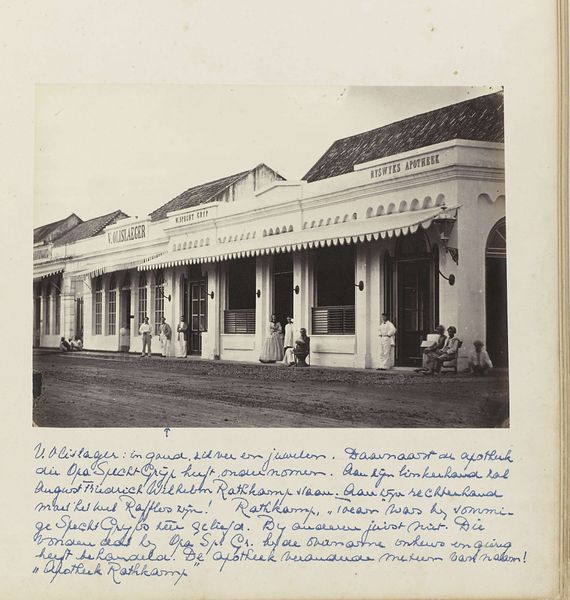 RYSWYKS APOTHEEK
W. SPECHT GRYP
V. OLISLAEGER
V. Olislager: in goud, zilver en juwelen. Daarnaast de apotheek
die Opa Specht Grijp heeft ondernomen. Aan zijn linkerhand zal
August Friedrich Wilhelm Rathkamp staan. Aan zijn rechterhand
Raffles zijn! Rathkamp, was bij sommi-
ge Specht Grijps zeer geliefd. By anderen juist niet. Die
vonden dat hij Opa Sp. Gr.
heeft behandeld. De apotheek veranderde meteen van naam!
"Apotheek Rathkamp"